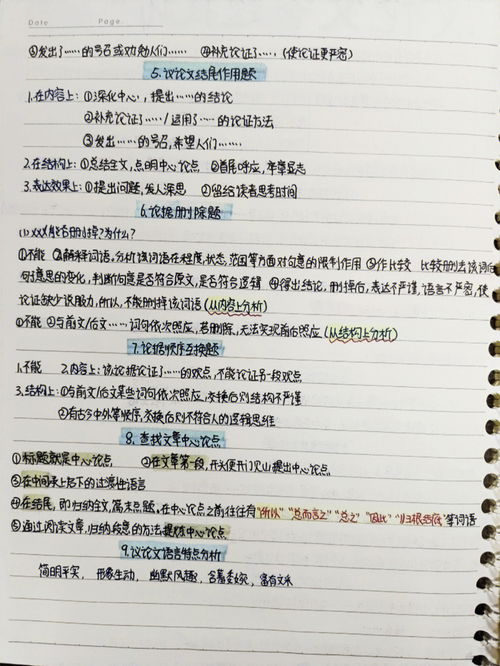 Date Page
③发出了……的号召或劝勉人们…… ④补充论证了……(使论证更严密)
5.议论文结尾作用题
1.在内容上:①深化中心,提出……的结论
②补充论证了……/运用了……的论证方法
③发出……的号召,希望人们……
2.在结构上:①总结全文,点明中心论点 ②首尾呼应,卒章显志
3.表达效果上:①提出问题,发人深思 ②留给读者思考时间
6.论据删除题
(1)xxx能否删掉?为什么?
①不能 ②解释词语,分析该词语在程度,状态,范围等方面对句意的限制作用 ③作比较 比较删去该词后
句意思的变化,判断句意是否符合原文,是否符合逻辑 ④得出结论,删掉后,表达不严谨,语言不严密,使
论证缺少说服力,所以,不能删掉该词语(从内容上分析)
①不能 ②与前文/后文……词句依次照应,若删除,无法实现前后照应(从结构上分析)
7.论据顺序互换题
1.不能 2.内容上:该论据论证了……的观点,不能论证另一段观点
3.结构上:①与前文/后文某些词句依次照应,交换后则结构不严谨
②有古今中外等顺序,交换后则不符合人的逻辑思维
8.查找文章中心论点
①标题就是中心论点 ②在文章第一段,开头便开门见山提出中心论点
③在中间承上启下的过渡性语言
④在结尾,即归纳全文,篇末点题,在中心论点之前往往有"所以""总而言之""总之""因此""归根结底"等词语
⑤通过阅读文章,归纳段意的方法提炼中心论点
9.议论文语言特点分析
简明平实, 形象生动, 幽默风趣,含蓄委婉,富有文采